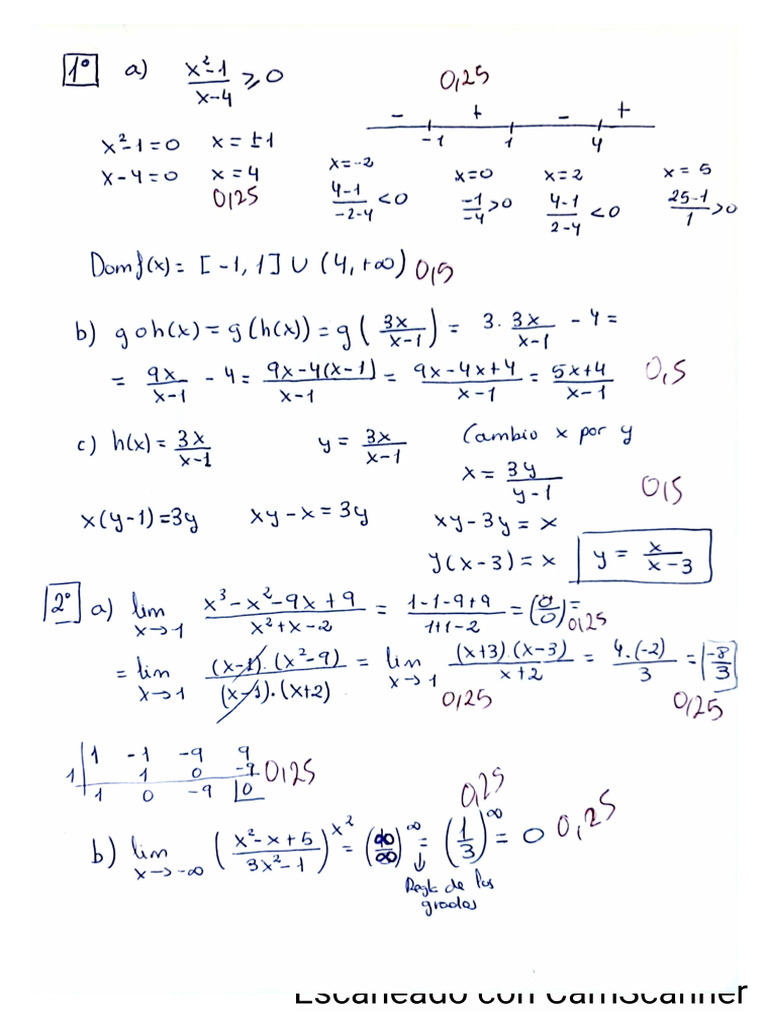 1º a) x²-1/x-4 ≥ 0 0,25
- + - +
-1 1 4
x²-1=0 x=±1
x-4=0 x=4
0,25
x=-2 x=0 x=2 x=5
4-1/-2-4 <0 -1/-4 >0 4-1/2-4 <0 25-1/1 >0
Domf(x) = [-1,1] ∪ (4,+∞) 0,5
b) goh(x) = g(h(x)) = g(3x/x-1) = 3·3x/x-1 - 4 =
= 9x/x-1 - 4 = 9x-4(x-1)/x-1 = 9x-4x+4/x-1 = 5x+4/x-1 0,5
c) h(x) = 3x/x-1 y = 3x/x-1 Cambio x por y
x = 3y/y-1 0,5
x(y-1)=3y xy-x=3y xy-3y=x
y(x-3)=x y = x/x-3
2º a) lim x→1 x³-x²-9x+9/x²+x-2 = 1-1-9+9/1+1-2 = (0/0) = 0,25
= lim x→1 (x-1)·(x²-9)/(x-1)·(x+2) = lim x→1 (x+3)·(x-3)/x+2 = 4·(-2)/3 = -8/3
0,25 0,25
1 -1 -9 9
1 1 0 -9 0,25
1 0 -9 0
0,25
b) lim x→-∞ (x²-x+5/3x²-1)^x² = (∞/∞)^∞ = (1/3)^∞ = 0 0,25
↓
Regla de los
grados
Escaneado con CamScanner